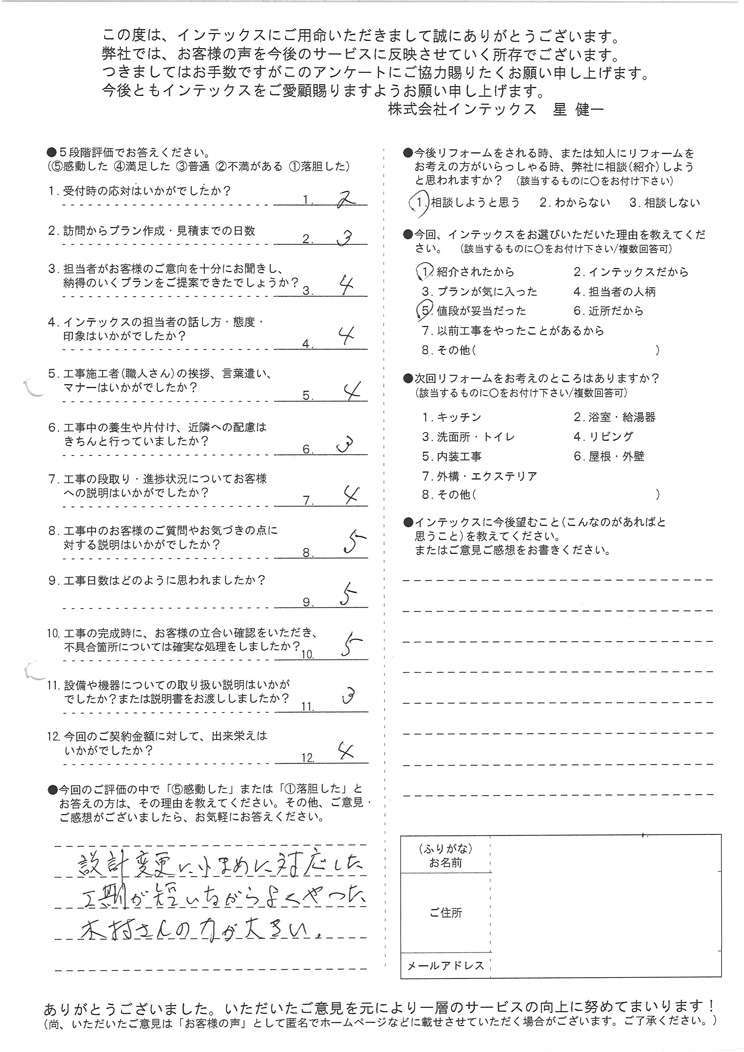 この度は、インテックスにご用命いただきまして誠にありがとうございます。
弊社では、お客様の声を今後のサービスに反映させていく所存でございます。
つきましてはお手数ですがこのアンケートにご協力賜りたくお願い申し上げます。
今後ともインテックスをご愛顧賜りますようお願い申し上げます。
株式会社インテックス 星 健一
●5段階評価でお答えください。
(⑤感動した ④満足した ③普通 ②不満がある ①落胆した)
1. 受付時の応対はいかがでしたか?
1. 2
2. 訪問からプラン作成・見積までの日数
2. 3
3. 担当者がお客様のご意向を十分にお聞きし、
納得のいくプランをご提案できたでしょうか?
3. 4
4. インテックスの担当者の話し方・態度・
印象はいかがでしたか?
4. 4
5. 工事施工者(職人さん)の挨拶、言葉遣い、
マナーはいかがでしたか?
5. 4
6. 工事中の養生や片付け、近隣への配慮は
きちんと行っていましたか?
6. 3
7. 工事の段取り・進捗状況についてお客様
への説明はいかがでしたか?
7. 4
8. 工事中のお客様のご質問やお気づきの点に
対する説明はいかがでしたか?
8. 5
9. 工事日数はどのように思われましたか?
9. 5
10. 工事の完成時に、お客様の立合い確認をいただき、
不具合箇所については確実な処理をしましたか?
10. 5
11. 設備や機器についての取り扱い説明はいかが
でしたか?または説明書をお渡ししましたか?
11. 3
12. 今回のご契約金額に対して、出来栄えは
いかがでしたか?
12. 4
●今回のご評価の中で「⑤感動した」または「①落胆した」と
お答えの方は、その理由を教えてください。その他、ご意見・
ご感想がございましたら、お気軽にお答えください。
設計変更に小まめに対応した
工期が短いながらよくやった
木村さんの力が大きい。
●今後リフォームをされる時、または知人にリフォームを
お考えの方がいらっしゃる時、弊社に相談(紹介)しよう
と思われますか? (該当するものに○をお付け下さい)
1. 相談しようと思う 2. わからない 3. 相談しない
●今回、インテックスをお選びいただいた理由を教えてくだ
さい。 (該当するものに○をお付け下さい/複数回答可)
1. 紹介されたから 2. インテックスだから
3. プランが気に入った 4. 担当者の人柄
5. 値段が妥当だった 6. 近所だから
7. 以前工事をやったことがあるから
8. その他( )
●次回リフォームをお考えのところはありますか?
(該当するものに○をお付け下さい/複数回答可)
1. キッチン 2. 浴室・給湯器
3. 洗面所・トイレ 4. リビング
5. 内装工事 6. 屋根・外壁
7. 外構・エクステリア
8. その他( )
●インテックスに今後望むこと(こんなのがあればと
思うこと)を教えてください。
またはご意見ご感想をお書きください。
(ふりがな)
お名前
ご住所
メールアドレス
ありがとうございました。いただいたご意見を元により一層のサービスの向上に努めてまいります!
(尚、いただいたご意見は「お客様の声」として匿名でホームページなどに載せさせていただく場合がございます。ご了承ください。)